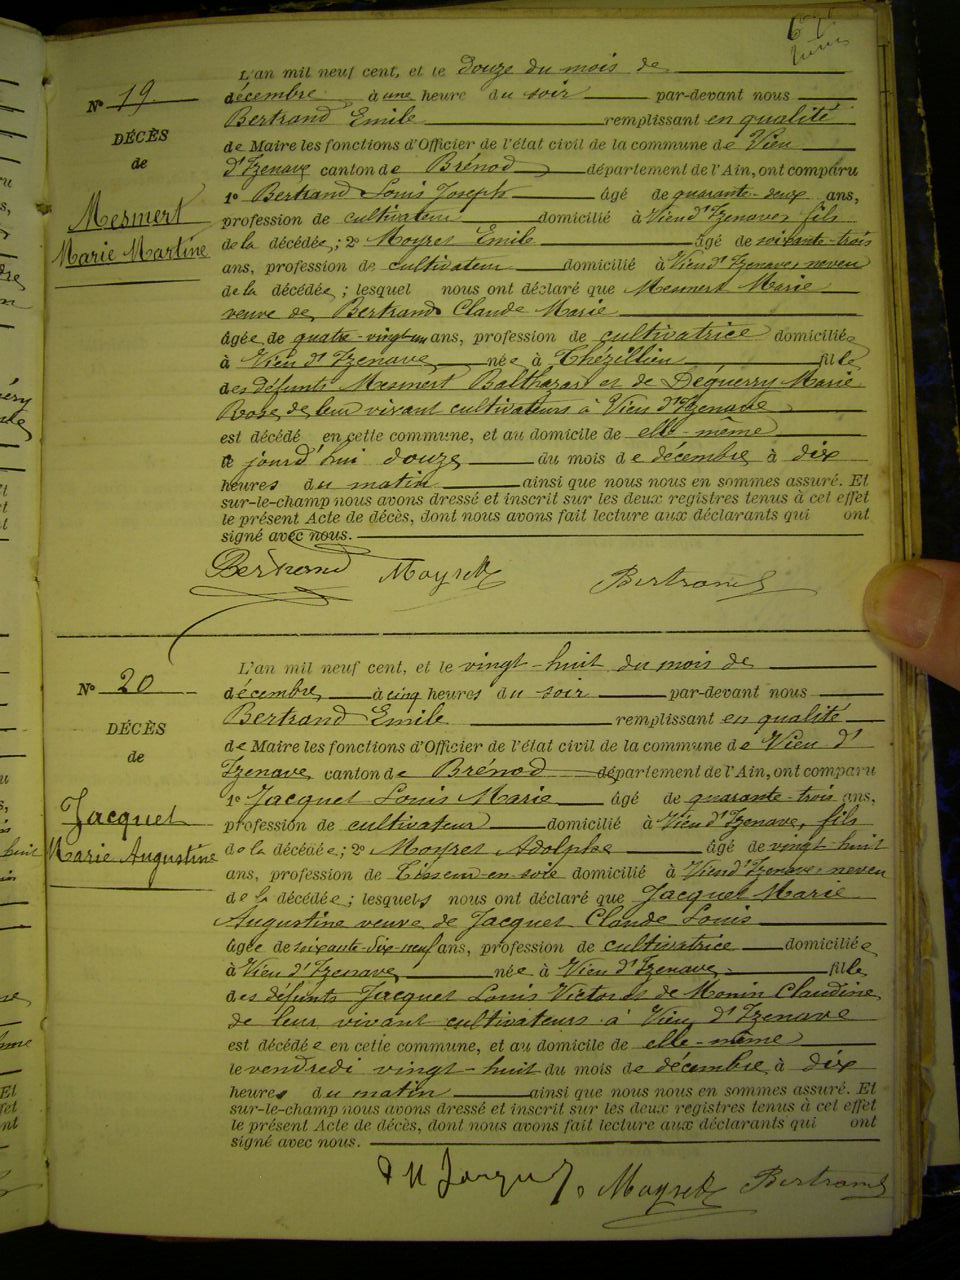 L'an mil neuf cent, et le douze du mois de
N° 19
décembre à une heure du soir par-devant nous
Bertrand Emile remplissant en qualité
DÉCÈS
de Maire les fonctions d'Officier de l'état civil de la commune de Vieu
de
d'Izenave canton de Brénod département de l'Ain, ont comparu
1° Bertrand Louis Joseph âgé de quarante-deux ans,
Mesmert
profession de cultivateur domicilié à Vieu d'Izenave, fils
Marie Martine
de la décédée; 2° Moyret Emile âgé de soixante-trois
ans, profession de cultivateur domicilié à Vieu d'Izenave, neveu
de la décédée; lesquel nous ont déclaré que Mesmert Marie
veuve de Bertrand Claude Marie
âgée de quatre-vingt-un ans, profession de cultivatrice domiciliée
à Vieu d'Izenave née à Chézillieu fille
des défunts Mesmert Balthazar et de Déguerry Marie
Rose de leur vivant cultivateurs à Vieu d'Izenave
est décédé en cette commune, et au domicile de elle-même
le jourd'hui douze du mois de décembre à dix
heures du matin ainsi que nous nous en sommes assuré. Et
sur-le-champ nous avons dressé et inscrit sur les deux registres tenus à cet effet
le présent Acte de décès, dont nous avons fait lecture aux déclarants qui ont
signé avec nous.
Bertrand Moyret Bertrand
L'an mil neuf cent, et le vingt-huit du mois de
N° 20
décembre à cinq heures du soir par-devant nous
Bertrand Emile remplissant en qualité
DÉCÈS
de Maire les fonctions d'Officier de l'état civil de la commune de Vieu d'
de
Izenave canton de Brénod département de l'Ain, ont comparu
1° Jacquet Louis Marie âgé de quarante-trois ans,
Jacquet
profession de cultivateur domicilié à Vieu d'Izenave, fils
Marie Augustine
de la décédée; 2° Moyret Adolphe âgé de vingt-huit
ans, profession de Tisseur-en-soie domicilié à Vieu d'Izenave, neveu
de la décédée; lesquels nous ont déclaré que Jacquet Marie
Augustine veuve de Jacquet Claude Louis
âgée de soixante-dix-neuf ans, profession de cultivatrice domiciliée
à Vieu d'Izenave née à Vieu d'Izenave fille
des défunts Jacquet Louis Victor et de Monin Claudine
de leur vivant cultivateurs à Vieu d'Izenave
est décédée en cette commune, et au domicile de elle-même
le vendredi vingt-huit du mois de décembre à dix
heures du matin ainsi que nous nous en sommes assuré. Et
sur-le-champ nous avons dressé et inscrit sur les deux registres tenus à cet effet
le présent Acte de décès, dont nous avons fait lecture aux déclarants qui ont
signé avec nous.
Jacquet Moyret Bertrand